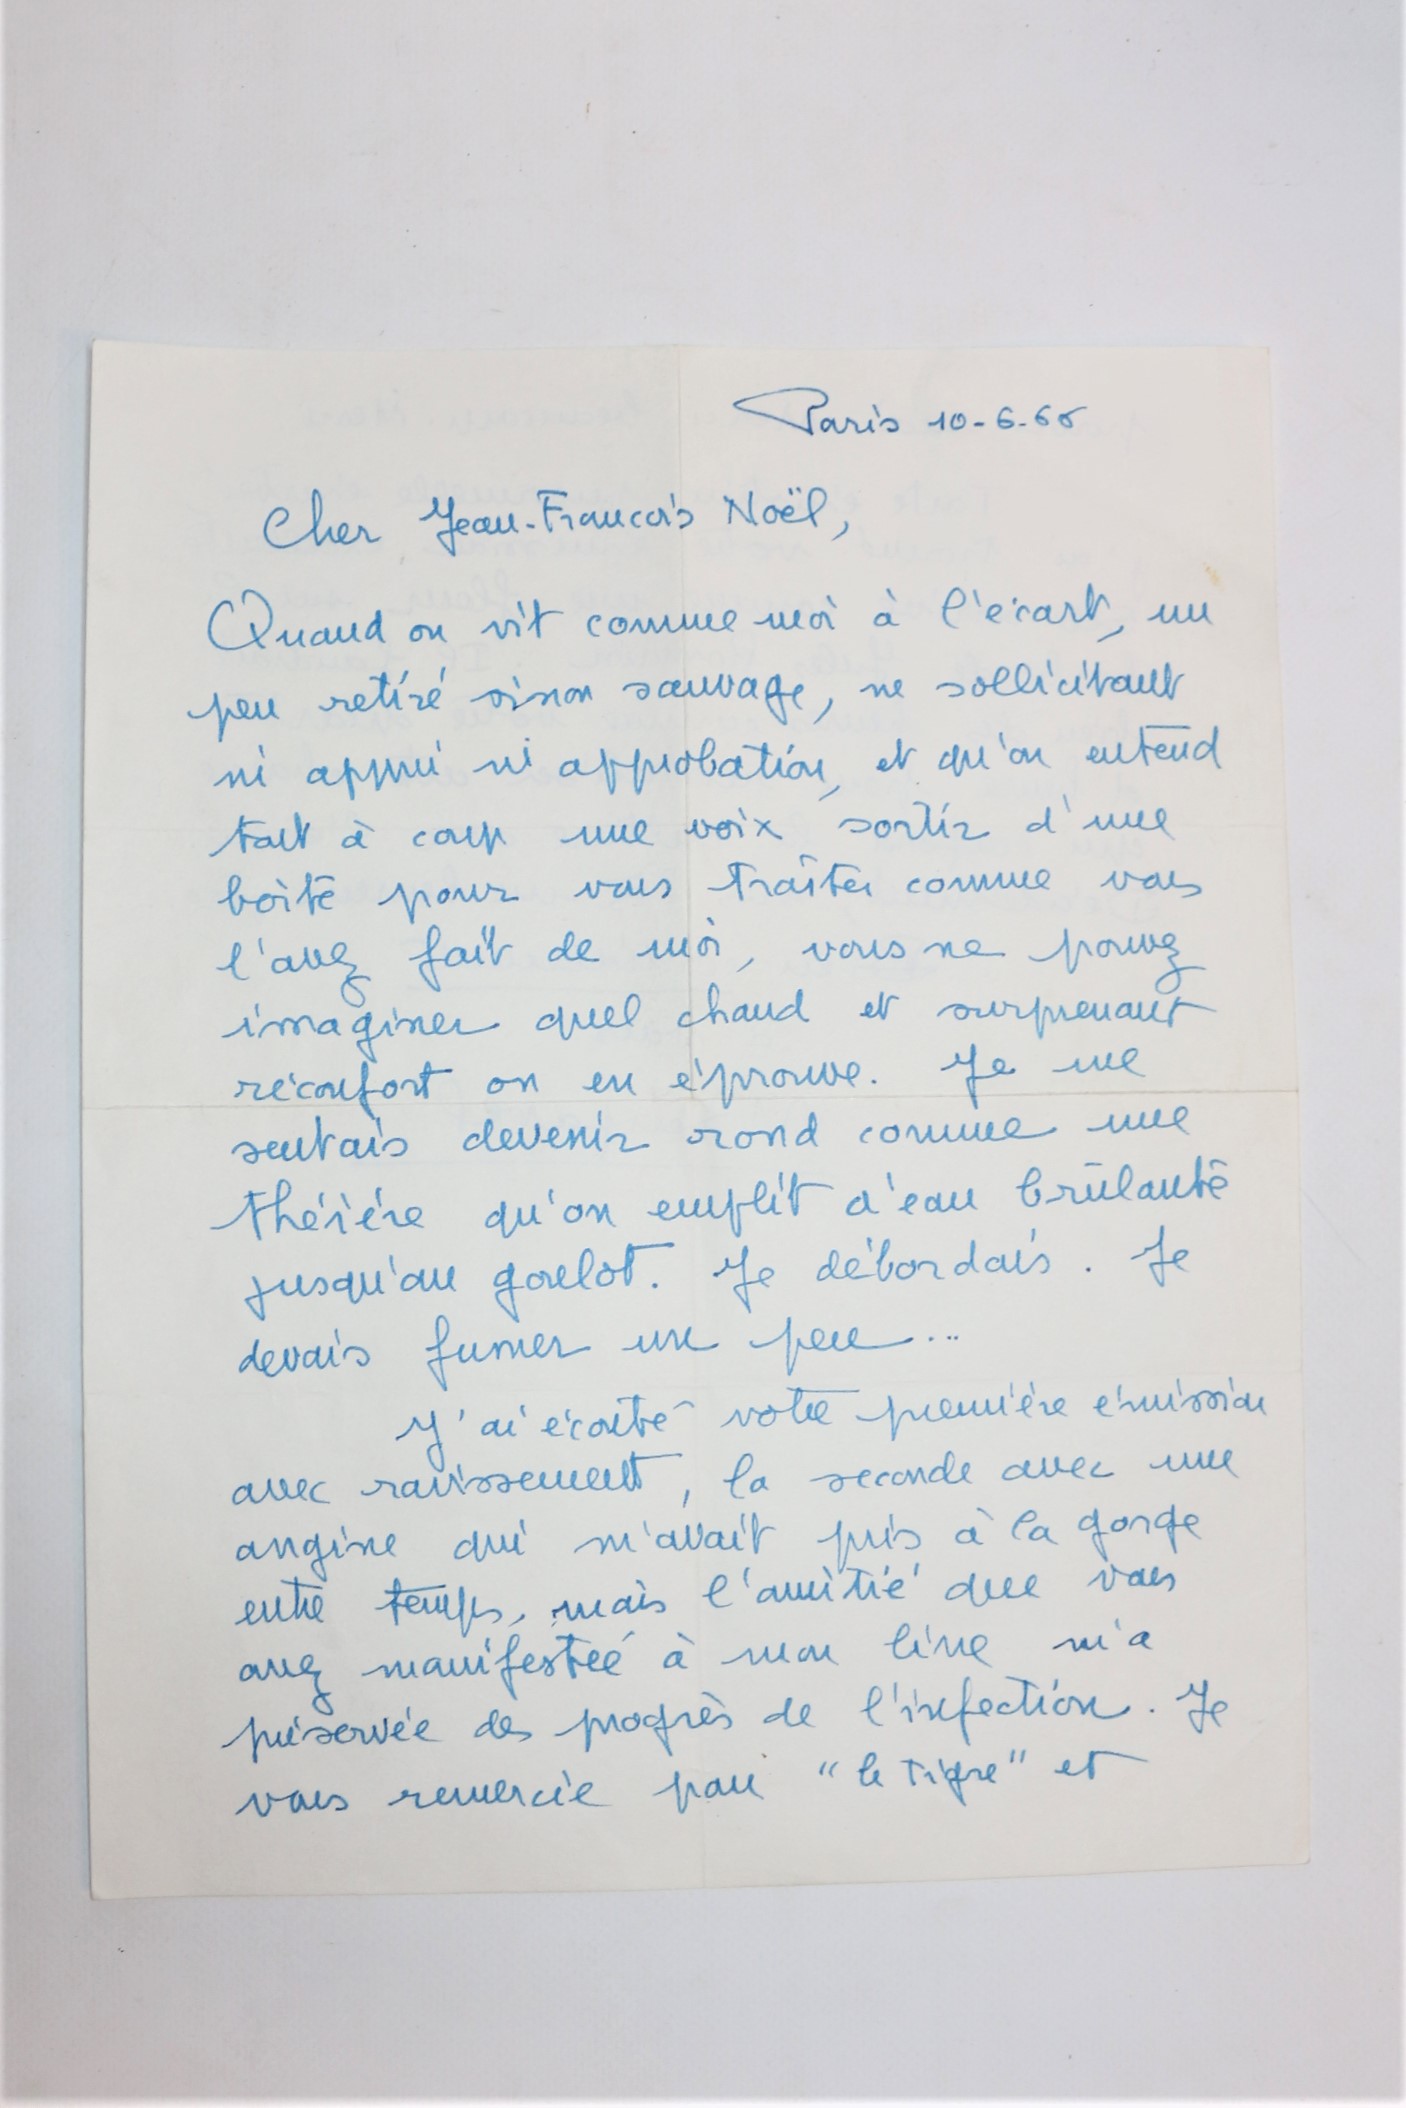 Paris 10-6-66
Cher Jean-François Noël,
Quand on vit comme moi à l'écart, un
peu retiré sinon sauvage, ne sollicitant
ni appui ni approbation, et qu'on entend
tout à coup une voix sortir d'une
boîte pour vous traiter comme vous
l'avez fait de moi, vous ne pouvez
imaginer quel chaud et surprenant
réconfort on en éprouve. Je me
sentais devenir rond comme une
théière qu'on emplit d'eau brûlante
jusqu'au goulot. Je débordais. Je
devais fumer un peu...
J'ai écouté votre première émission
avec ravissement, la seconde avec une
angine qui m'avait pris à la gorge
entre temps, mais l'amitié que vous
avez manifestée à mon livre m'a
préservée des progrès de l'infection. Je
vous remercie pour "le Tigre" et